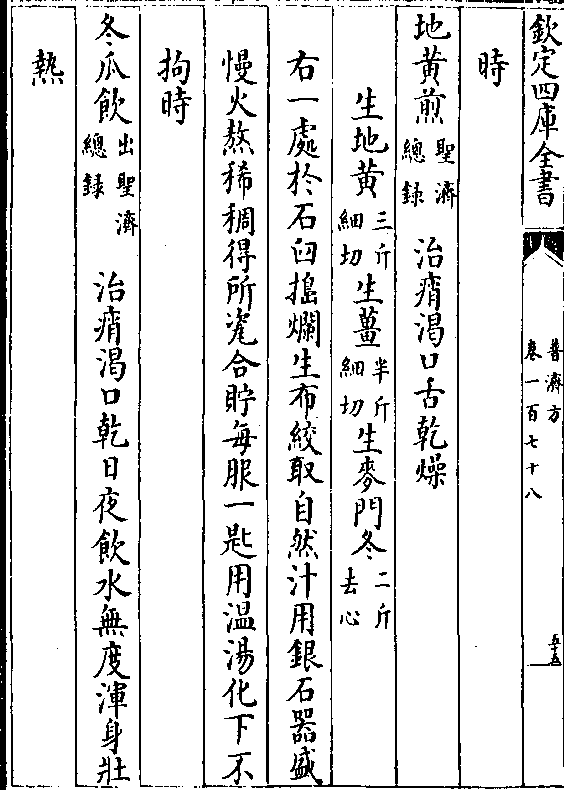 欽定四庫全書
普濟方
卷一百七十八
五十五
時
地黄煎聖濟總錄　治痟渴口舌乾燥
生地黄三斤細切生薑半斤細切生麥門冬二斤去心
右一處於石臼搗爛生布絞取自然汁用銀石器盛
慢火熬稀稠得所瓷合貯每服一匙用温湯化下不
拘時
冬瓜飲出聖濟總錄　治痟渴口乾日夜飲水無度渾身壯
熱